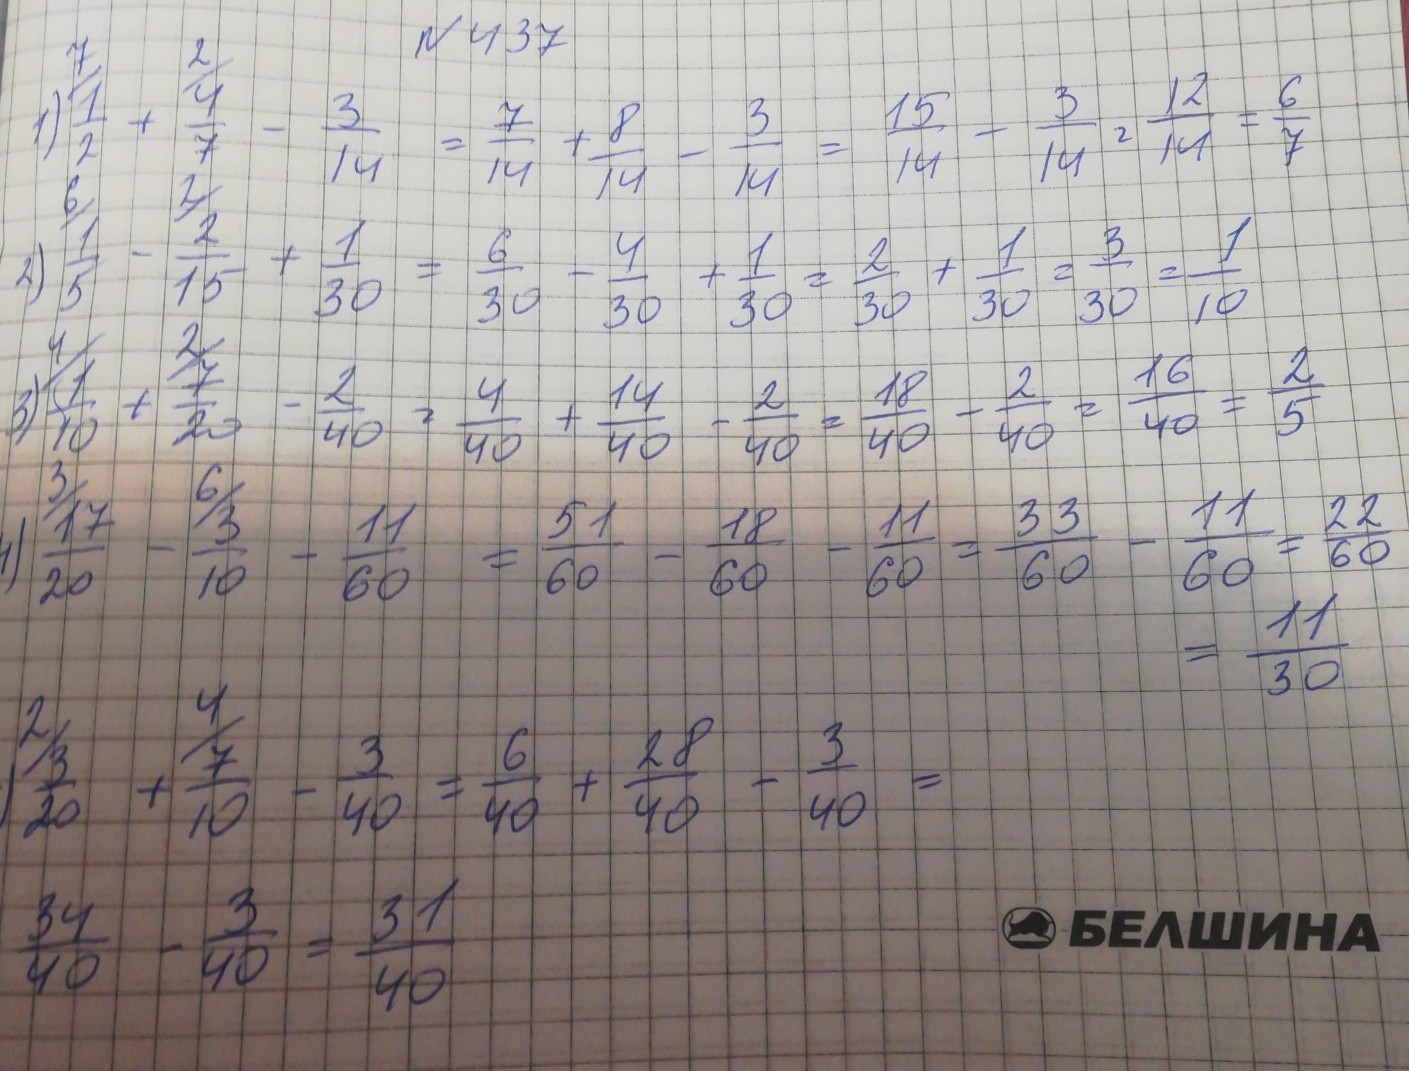 № 437
1) 7/ 1/2 + 2/ 4/7 - 3/14 = 7/14 + 8/14 - 3/14 = 15/14 - 3/14 = 12/14 = 6/7
2) 6/ 1/5 - 2/ 2/15 + 1/30 = 6/30 - 4/30 + 1/30 = 2/30 + 1/30 = 3/30 = 1/10
3) 4/ 1/10 + 2/ 7/20 - 2/40 = 4/40 + 14/40 - 2/40 = 18/40 - 2/40 = 16/40 = 2/5
4) 3/ 17/20 - 6/ 3/10 - 11/60 = 51/60 - 18/60 - 11/60 = 33/60 - 11/60 = 22/60
= 11/30
) 2/ 3/20 + 4/ 7/10 - 3/40 = 6/40 + 28/40 - 3/40 =
34/40 - 3/40 = 31/40
БЕЛШИНА